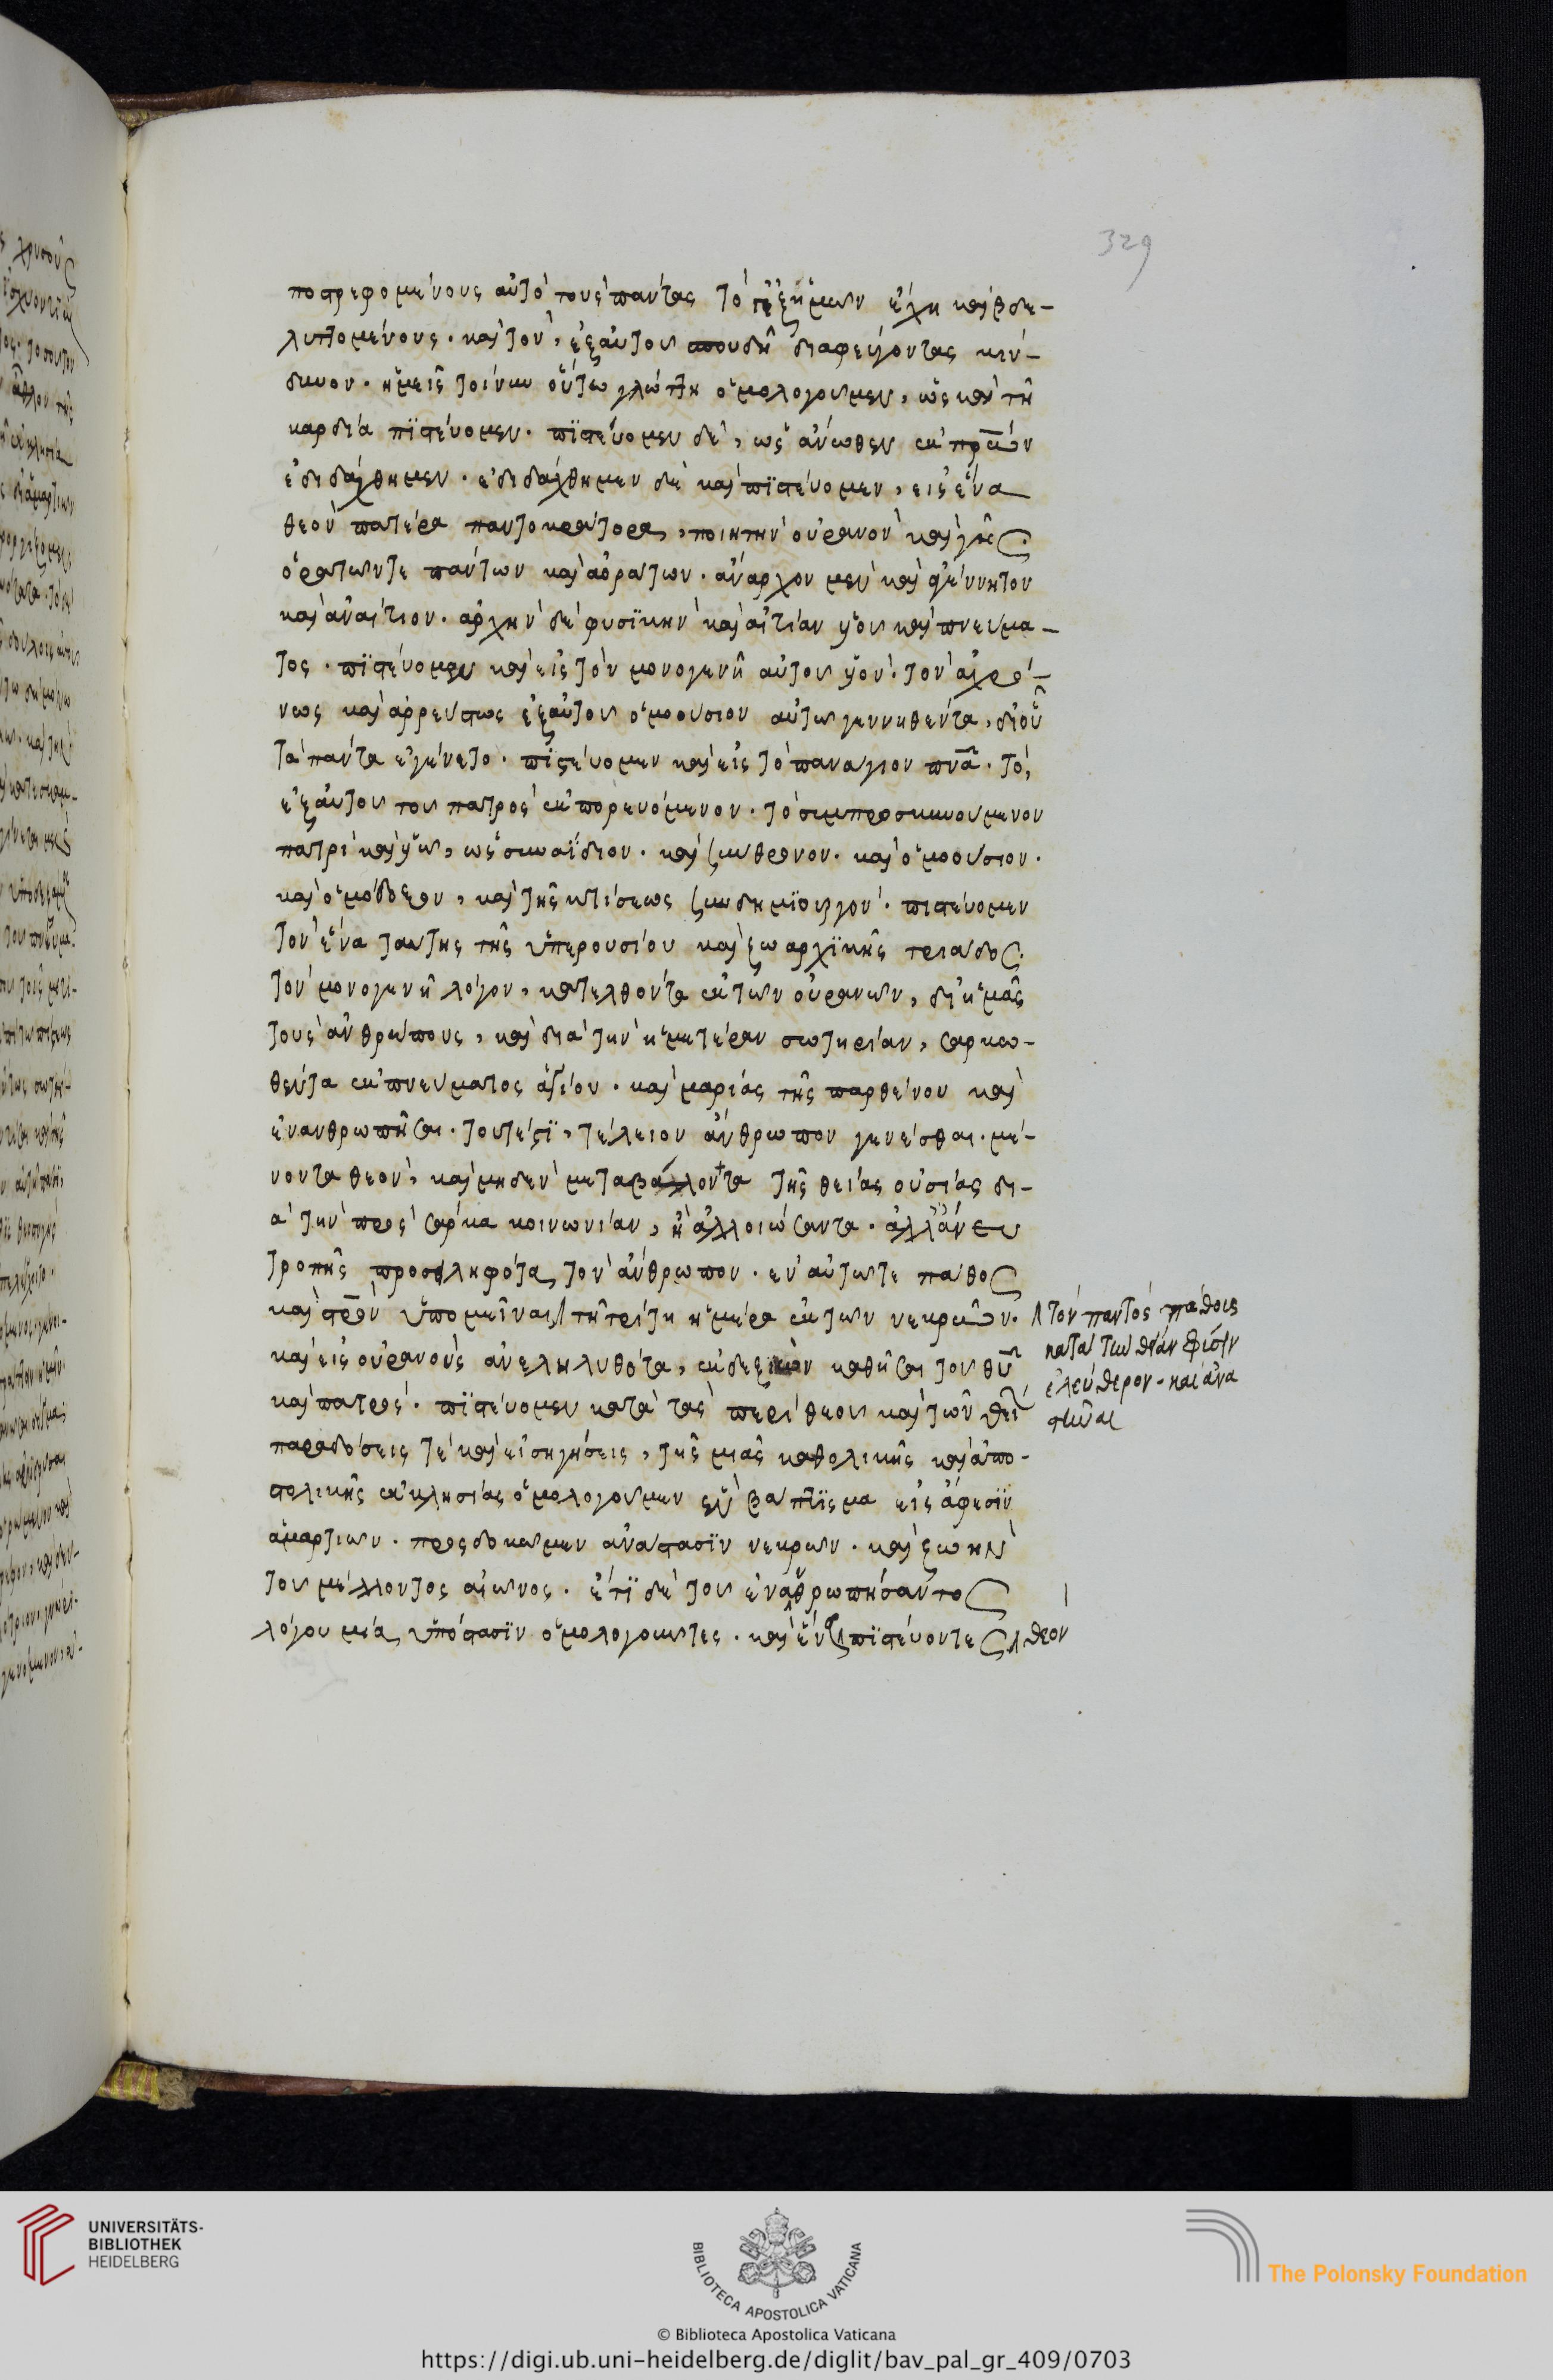 329
ποστρεφομένους αὐτὸ τοὺς πάντας τὸ ἐξ ἡμῶν ἔχη καὶ βδε-
λυττομένους. καὶ τὸν, ἐξ αὐτοῦ σπουδῆ διαφεύγοντας κιν-
δυνον. ἡμεῖς τοίνυν οὕτω γλώττη ὁμολογοῦμεν, ὡς καὶ τῆ
καρδία πιστεύομεν. πιστεύομεν δὲ, ὡς ἄνωθεν ἐκ πρων
ἐδιδάχθημεν. ἐδιδάχθημεν δὲ καὶ πιστεύομεν, εἰς ἕνα
θεὸν πατέρα παντοκράτορα, ποιητὴν οὐρανοῦ καὶ γῆς.
ὁρατῶν τε πάντων καὶ ἀοράτων. ἄναρχον μὲν καὶ ἀγέννητον
καὶ ἀναίτιον. ἀρχὴν δὲ φυσικὴν καὶ αἰτίαν υἱοῦ καὶ πνευμα-
τος. πιστεύομεν καὶ εἰς τὸν μονογενῆ αὐτοῦ υἱὸν. τὸν ἀχρό-
νως καὶ ἀρρεύστως ἐξ αὐτοῦ ὁμοούσιον αὐτῶ γεννηθέντα, δι οὗ
τὰ πάντα ἐγένετο. πιστεύομεν καὶ εἰς τὸ πανάγιον πνα. τὸ,
ἐξ αὐτοῦ τοῦ πατρὸς ἐκπορευόμενον. τὸ συμπροσκυνούμενον
πατρὶ καὶ υἱῶ, ὡς συναΐδιον. καὶ σύνθρονον. καὶ ὁμοούσιον.
καὶ ὁμόδοξον, καὶ τῆς κτίσεως συνδημιουργὸν. πιστεύομεν
τὸν ἕνα ταύτης τῆς ὑπερουσίου καὶ ζωαρχικῆς τριάδος.
τὸν μονογενῆ λόγον, κατελθόντα ἐκ τῶν οὐρανῶν, δι ἡμᾶς
τοὺς ἀνθρώπους, καὶ διὰ τὴν ἡμετέραν σωτηρίαν, σαρκω-
θέντα ἐκ πνεύματος ἁγίου. καὶ μαρίας τῆς παρθένου καὶ
ἐνανθρωπῆσαι. τουτέστι, τέλειον ἄνθρωπον γενέσθαι. μέ-
νοντα θεὸν, καὶ μηδὲν μεταβαλλοντα τῆς θείας οὐσίας δι-
ὰ τὴν πρὸς σάρκα κοινωνίαν, ἢ ἀλλοιώσαντα. ἀλλ ἄνευ
τροπῆς προσειληφότα τὸν ἄνθρωπον. ἐν αὐτῶ τε πάθος
καὶ στρὸν ὑπομεῖναι τῆ τρίτη ἡμέρα ἐκ τῶν νεκρῶν.
τὸν παντὸς πάθους
κατὰ τὴν θείαν φύσιν
ἐλεύθερον. καὶ ἀνα
στῆναι
καὶ εἰς οὐρανοὺς ἀνεληλυθότα, ἐκ δεξιῶν καθῆσαι τοῦ θυ
καὶ πατρὸς. πιστεύομεν κατὰ τὰς περὶ θεοῦ καὶ τῶν θεί
παραδόσεις τὲ καὶ εἰσηγήσεις, τῆς μιᾶς καθολικῆς καὶ ἀπο-
στολικῆς ἐκκλησίας ὁμολογοῦμεν ἓν βάπτισμα εἰς ἄφεσιν
ἁμαρτιῶν. προσδοκῶμεν ἀνάστασιν νεκρῶν. καὶ ζωὴν
τοῦ μέλλοντος αἰῶνος. ἔτι δὲ τοῦ ἐνανθρωπήσαντος
λόγου μία ὑπόστασιν ὁμολογοῦντες. καὶ ἕνα πιστεύοντες θεον
UNIVERSITÄTS-
BIBLIOTHEK
HEIDELBERG
BIBLIOTECA APOSTOLICA VATICANA
The Polonsky Foundation
© Biblioteca Apostolica Vaticana
https://digi.ub.uni-heidelberg.de/diglit/bav_pal_gr_409/0703